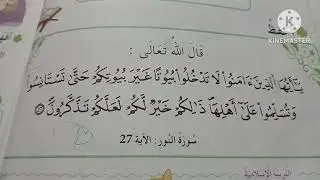 KINEMASTER
قَالَ اللهُ تَعَالَى :
يَٰٓأَيُّهَا ٱلَّذِينَ ءَامَنُوا۟ لَا تَدْخُلُوا۟ بُيُوتًا غَيْرَ بُيُوتِكُمْ حَتَّىٰ تَسْتَأْنِسُوا۟
وَتُسَلِّمُوا۟ عَلَىٰٓ أَهْلِهَا ذَٰلِكُمْ خَيْرٌ لَّكُمْ لَعَلَّكُمْ تَذَكَّرُونَ
سُورَةُ النُّورِ: الآيَة 27
التربية الإسلامية